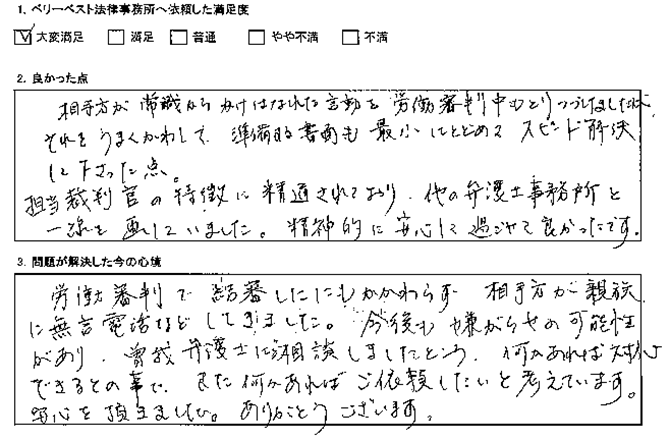 1. ベリーベスト法律事務所へ依頼した満足度
大変満足 満足 普通 やや不満 不満
2. 良かった点
相手方が常識からかけはなれた言動を労働審判中もとりつづけましたが、
それをうまくかわして、準備する書面も最小にとどめてスピード解決
して下さった点。
担当裁判官の特徴に精通されており、他の弁護士事務所と
一線を画していました。精神的に安心して過ごせて良かったです。
3. 問題が解決した今の心境
労働審判で結審したにもかかわらず相手方が親族
に無言電話などしてきました。今後も嫌がらせの可能性
があり、曽我弁護士にご相談しましたところ、何かあれば対応
できるとの事で、また何かあればご依頼したいと考えています。
安心を頂きました。ありがとうございます。